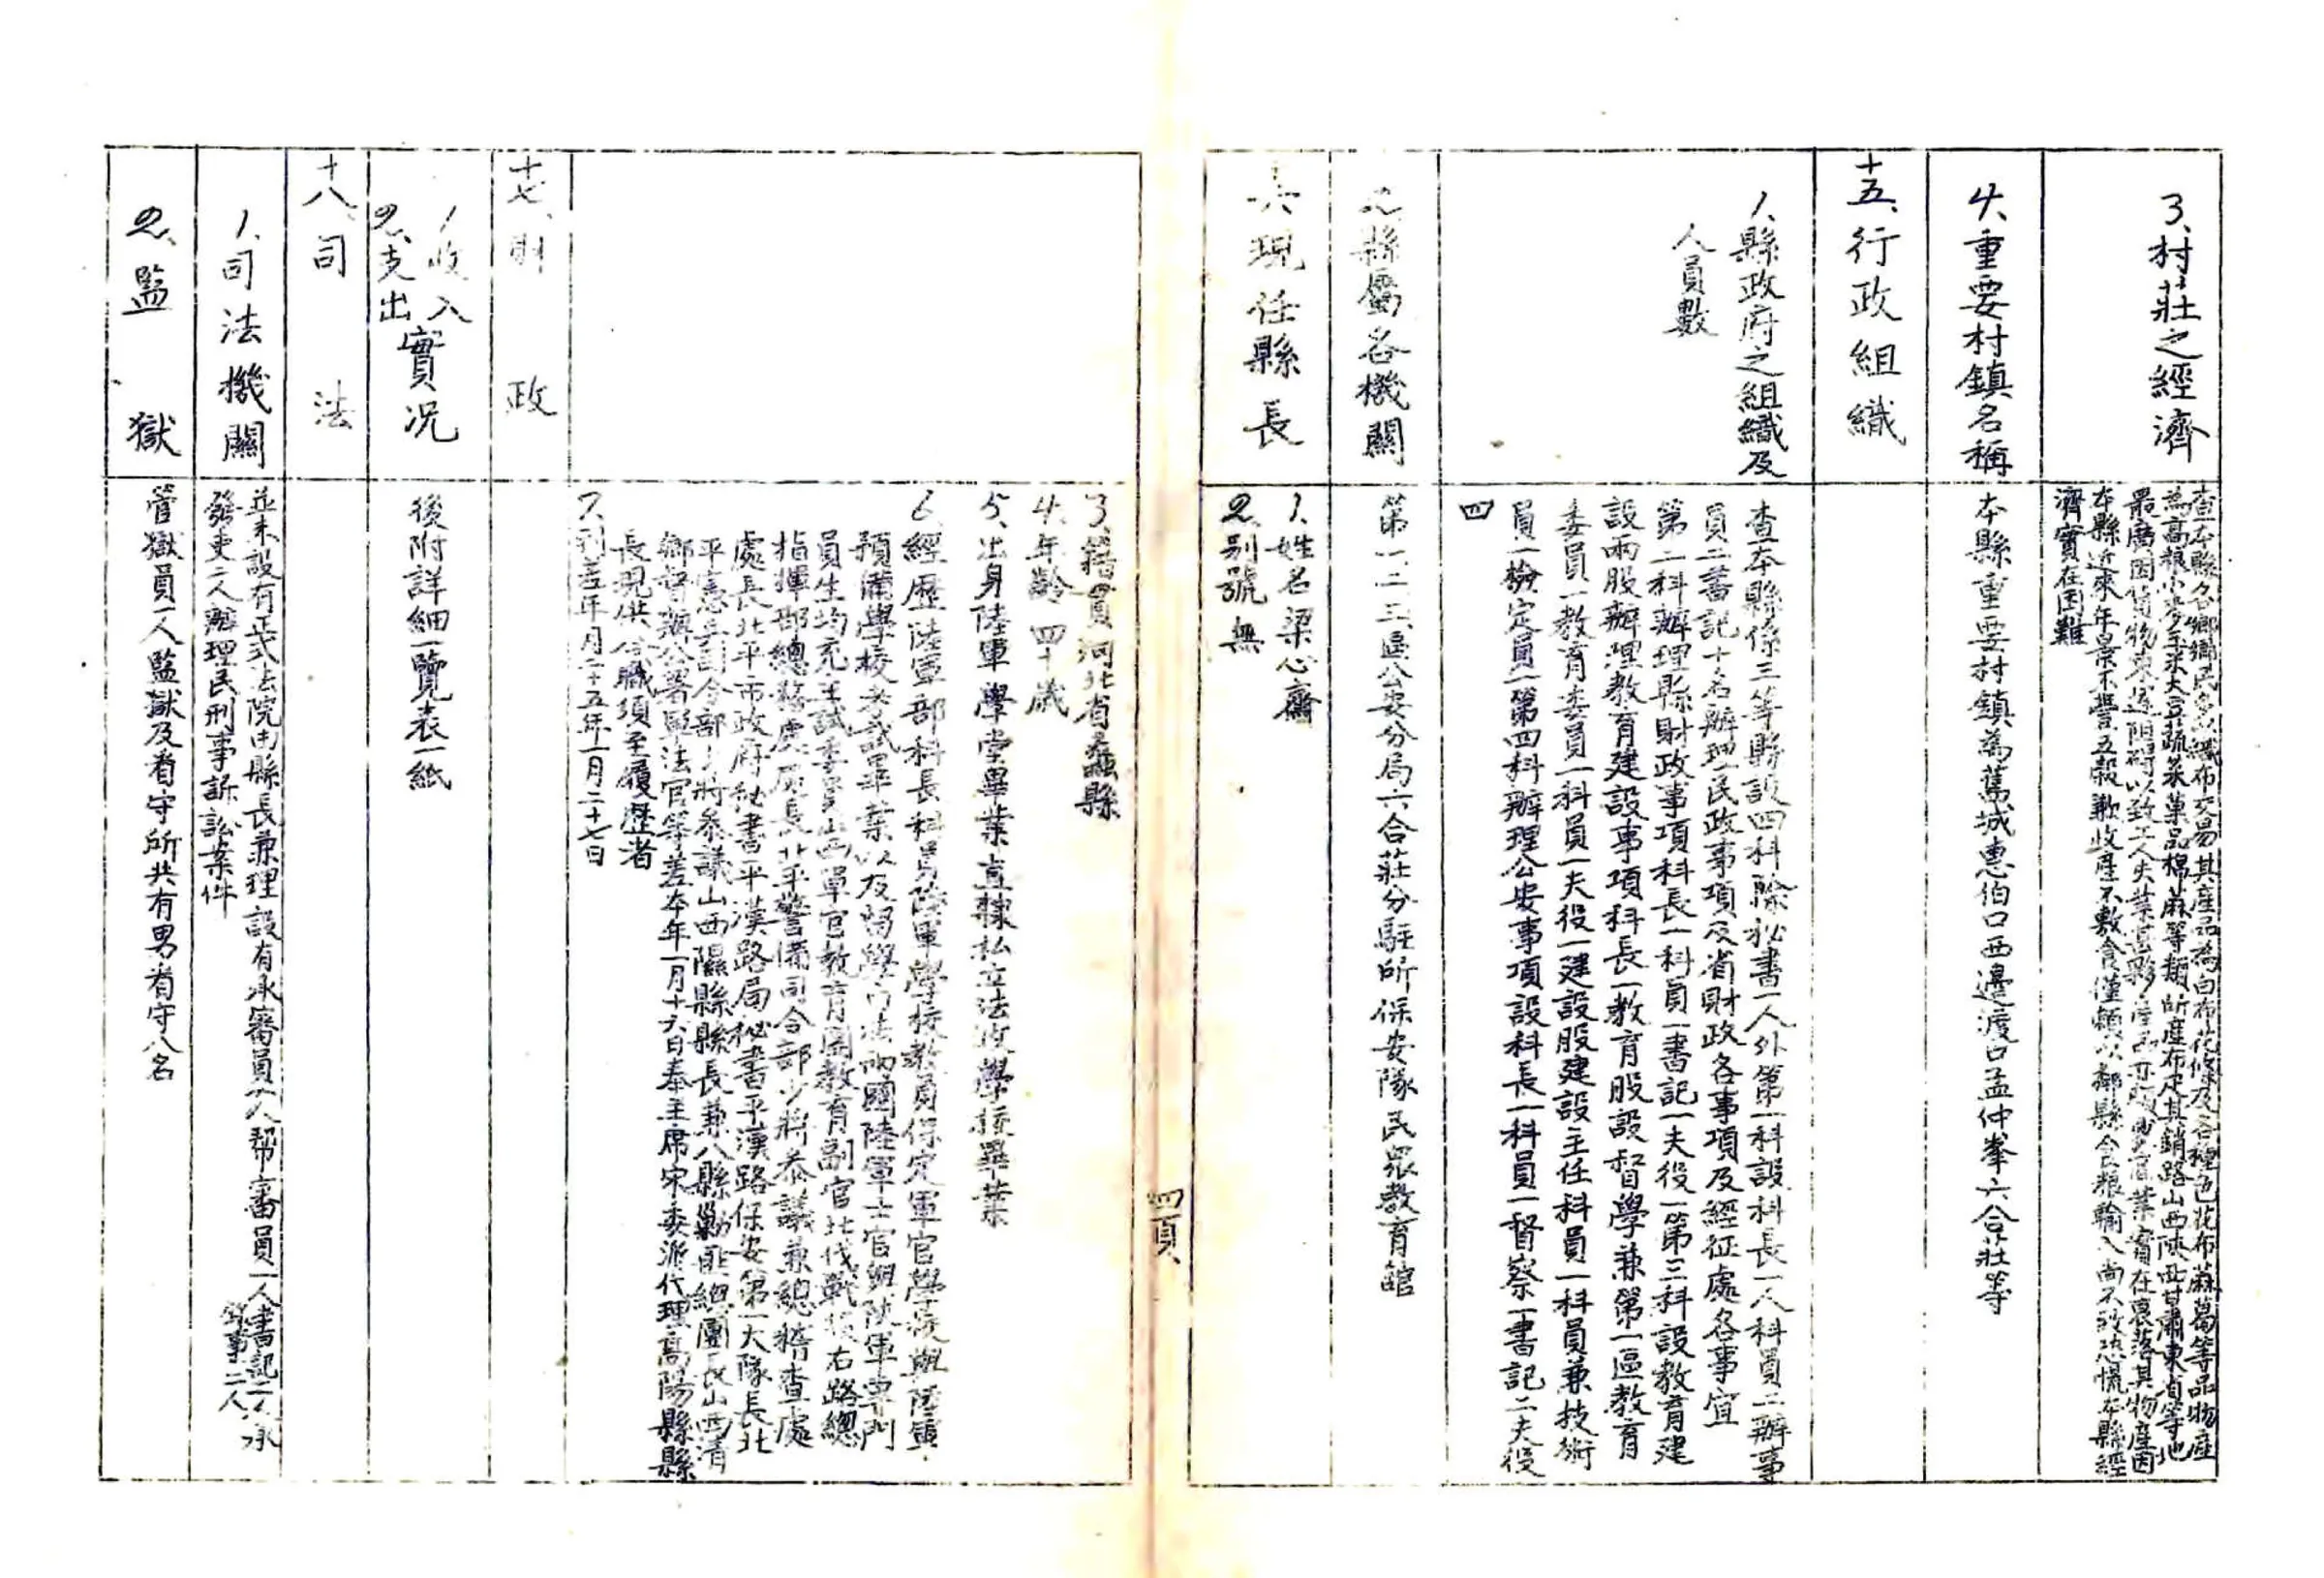 3、村莊之經濟
查本縣各鄉鄉民多以織布交易其產品為白布花條及各種色花布麻葛等品物產
為高粮小麥玉米大豆蔬菜菓品棉麻等類所產布疋其銷路山西陝西甘肅東省等地
最廣因貨物來源阻碍以致工人失業甚夥產品亦實在衰落其物產因
本縣近來年景不豐五穀歉收產不敷食僅賴以鄰縣食粮輸入尚不致恐慌本縣經
濟實在困難
4、重要村鎮名稱
本縣重要村鎮為舊城惠伯口西邊渡口孟仲峯六合莊等
十五、行政組織
1、縣政府之組織及
人員數
查本縣係三等縣設四科除秘書一人外第一科設科長一人科員二辦事
員二書記十名辦理民政事項及省財政各事項及經征處各事宜
第二科辦理縣財政事項科長一科員一書記一夫役一第三科設教育建
設兩股辦理教育建設事項科長一教育股設督學兼第一區教育
委員一教育委員一科員一夫役一建設股建設主任科員一科員兼技術
員一檢定員一第四科辦理公安事項設科長一科員一督察一書記二夫役
四
2、縣屬各機關
第一二三區公安分局六合莊分駐所保安隊民眾教育館
十六現任縣長
1、姓名梁心齋
2、別號無
3、籍貫河北省蠡縣
4、年齡四十歲
5、出身陸軍學堂畢業直隸私立法政學校畢業
6、經歷陸軍部科長科員陸軍學校教員保定軍官學校與陸軍
預備學校考試畢業以及留學法兩國陸軍士官與陸軍專門
員生均充主試委員山西軍官教育團教育副官北伐戰役右路總
指揮部總務處處長北平警備司令部少將參議兼總稽查處
處長北平市政府秘書平漢路局秘書平漢路保安第一大隊長北
平憲兵司令部少將參議山西隰縣縣長兼八縣剿匪總團長山西清
鄉督辦公署軍法官等差本年一月十六日奉主席宋委派代理高陽縣縣
長現供公職項至履歷者
7、到差年月二十五年一月二十七日
十七、財政
1、收入
2、支出
實况
後附詳細一覽表一紙
十八、司法
1、司法機關
並未設有正式法院由縣長兼理設有承審員一人帮審員一人書記二人承
發吏二人辦理民刑事訴訟案件
2、監獄
管獄員一人監獄及看守所共有男看守八名
四頁、